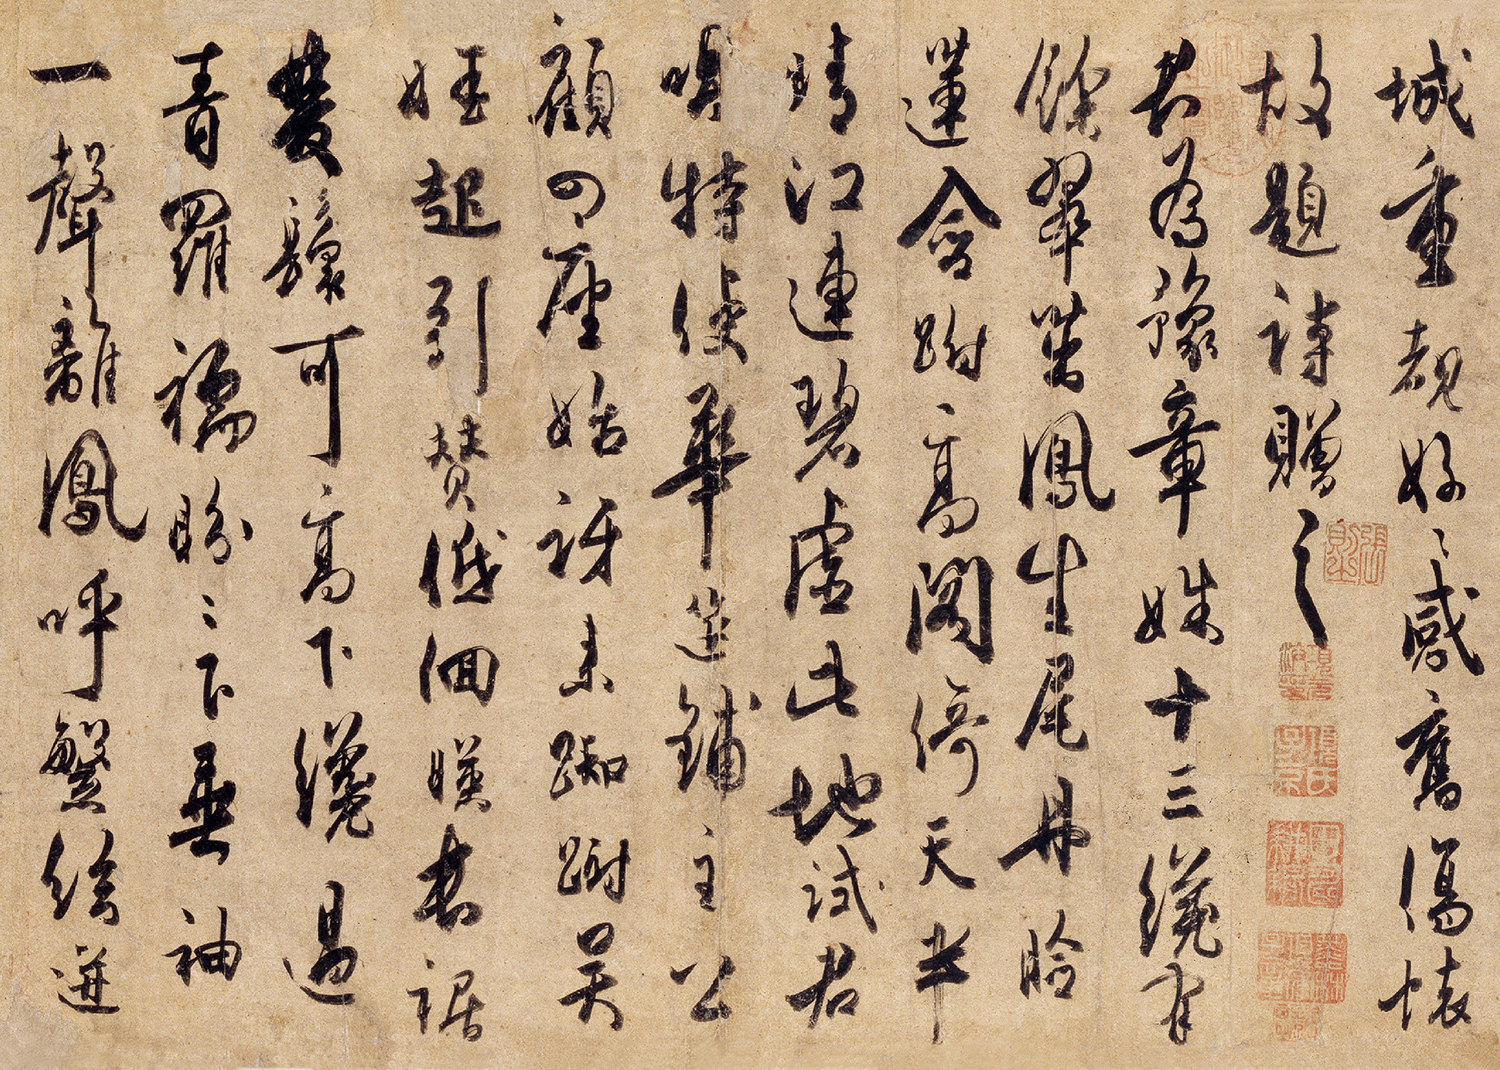 城重覩好〻感舊傷懷
故題詩贈之
君為豫章姝十三纔有
餘翠茁鳳生尾丹臉
蓮含跗高閣倚天半
晴江連碧虛此地試君
唱特使華筵鋪主公
顧四座始訝來踟蹰吳
娃起引贊低佪暎長裾
雙鬟可高下纔過
青羅襦盼〻下垂袖
一聲離鳳呼繁絃迸